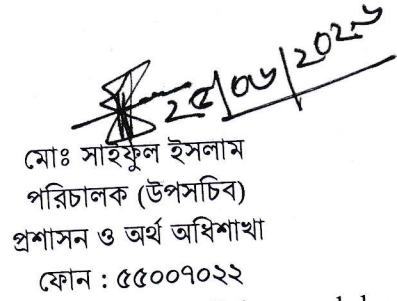 ২৫/০৬/২০২৬
মোঃ সাইফুল ইসলাম
পরিচালক (উপসচিব)
প্রশাসন ও অর্থ অধিশাখা
ফোন : ৫৫০০৭০২২